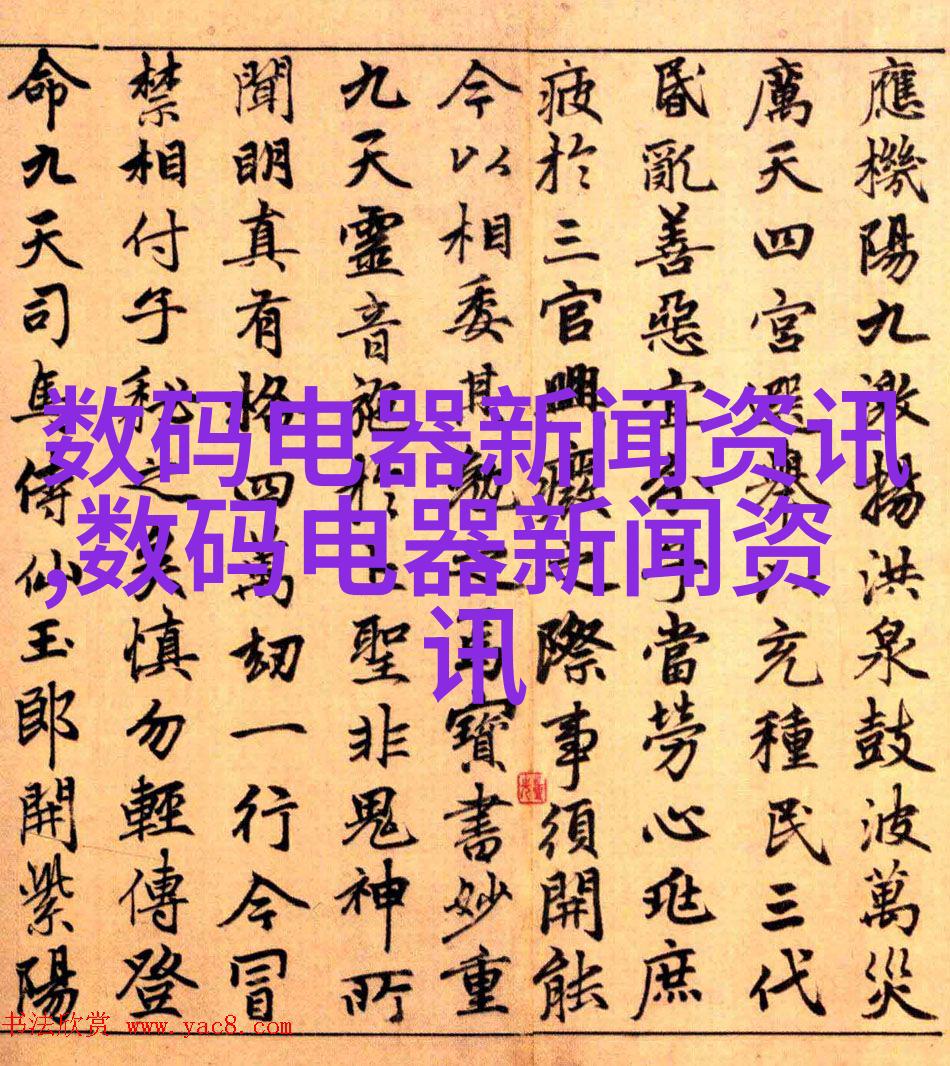 應機陽九激揚洪泉鼓波萬災
厲天四宮選舉充種民三代
昏亂善惡宜分當勞心兆庶
疲於三官興廢之際事須開能
今以相委其勗之焉寶書妙重
九天靈音施於上聖非鬼神所
聞明真有格四萬劫一行今冒
禁相付子秘之矣慎勿輕傳登
命九天司馬侍仙玉郎開紫陽
数码电器新闻资讯
,数码电器新闻资
讯
书法欣赏 www.yac8.com